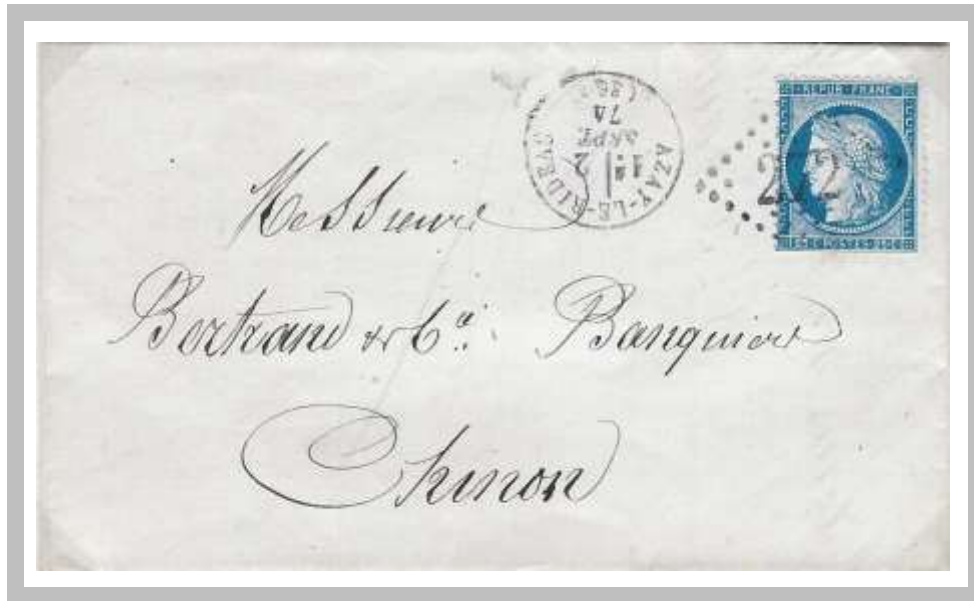 AZAY-LE-RIDEAU
2
SEPT.
74
(36)
REPUB. FRANC.
272
25 C POSTES 25 C
Messieurs
Bertrand & Cie. Banquiers
Chinon